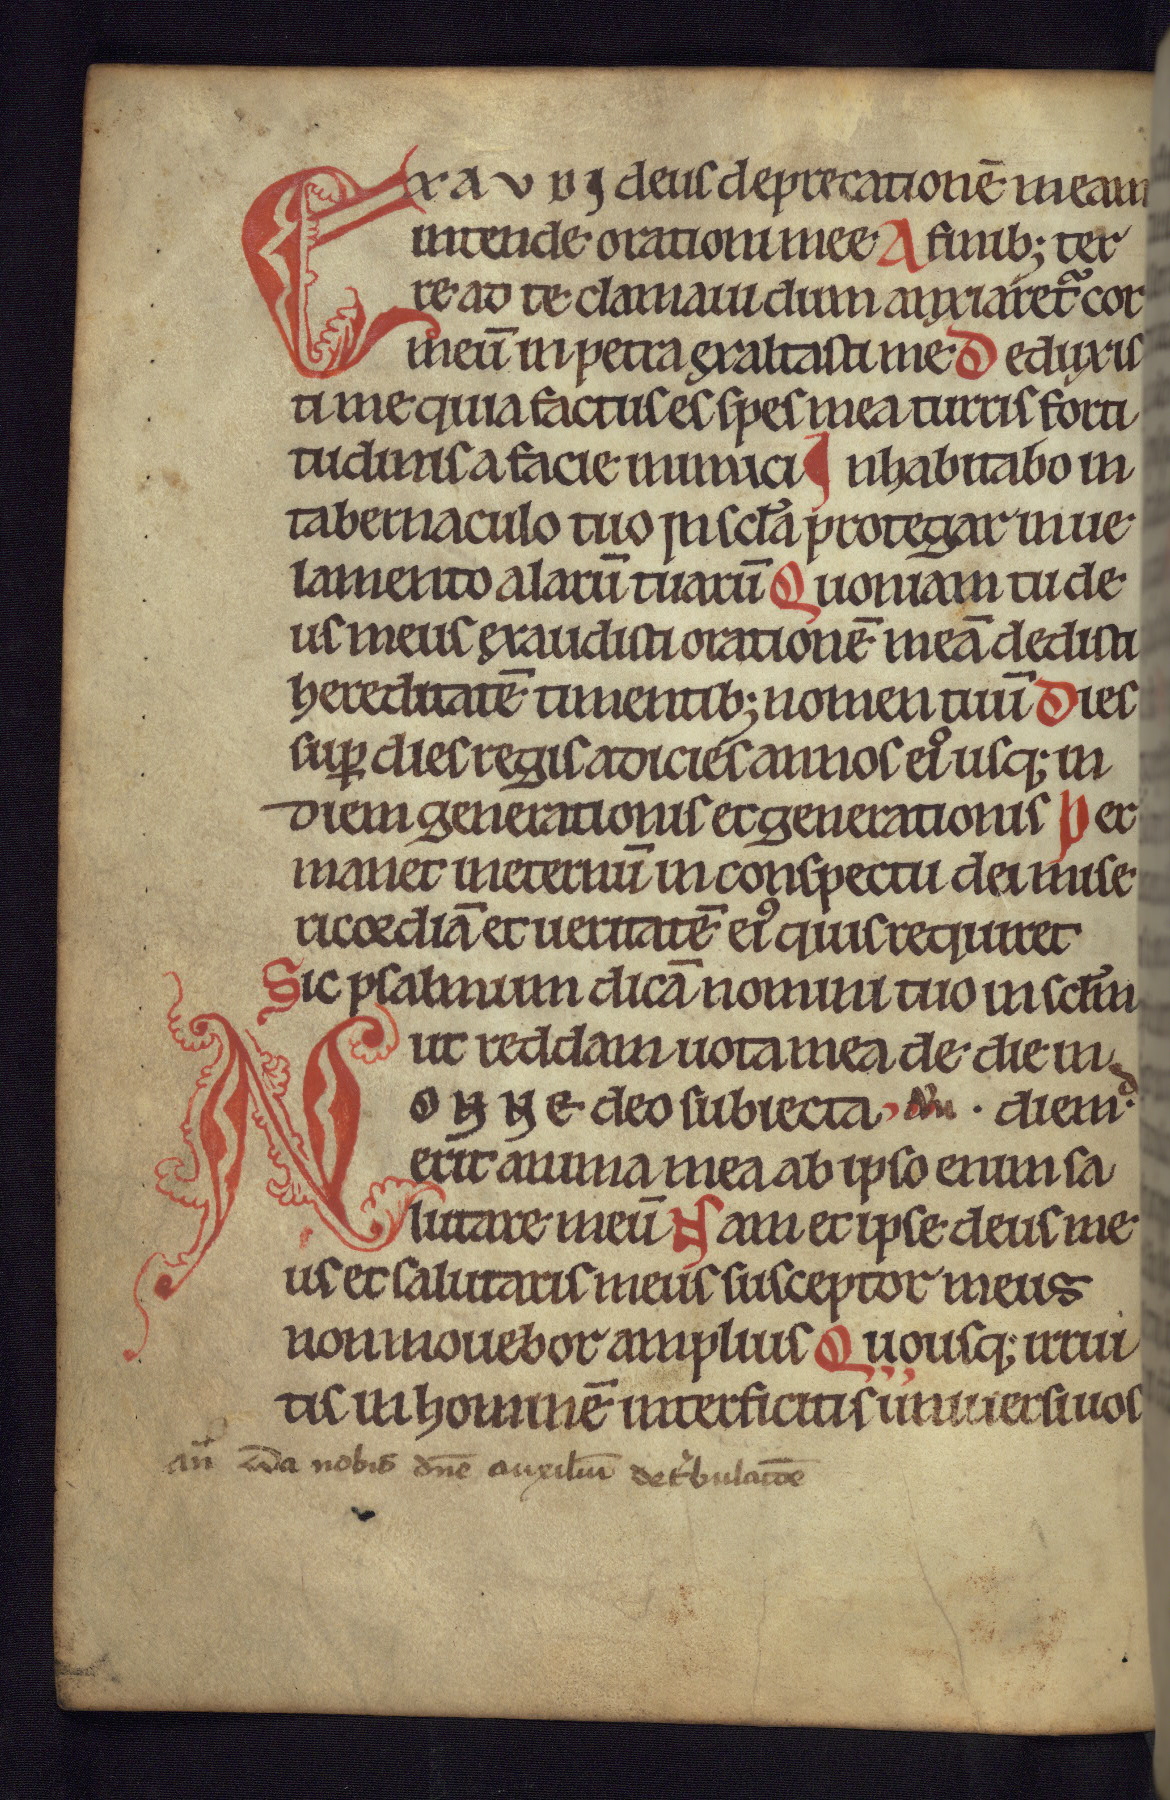 EXAVDI deus deprecationē meam
intende orationi mee A finib; ter
re ad te clamaui dum anxiaret᷑ cor
meū in petra exaltasti me Deduxis
ti me quia factus es spes mea turris forti
tudinis a facie inimici Inhabitabo in
tabernaculo tuo in scl̄a protegar in ue
lamento alarū tuarū Quoniam tu de
us meus exaudisti orationē meā dedisti
hereditatē timentib; nomen tuū Dies
suꝑ dies regis adicies annos eiꝰ usq; in
diem generationis et generationis Per
manet in eternū in conspectu dei mise
ricordiā et ueritatē eiꝰ quis requiret
Sic psalmum dicā nomini tuo in scl̄m
ut reddam uota mea de die in
NONNE deo subiecta diem
erit anima mea ab ipso enim sa
lutare meū Nam et ipse deus me
us et salutaris meus susceptor meus
non mouebor amplius Quousq; irrui
tis in hominē interficitis uniuersi uos
an̄ Da nobis dn̄e auxiliū de t͛bulatōe